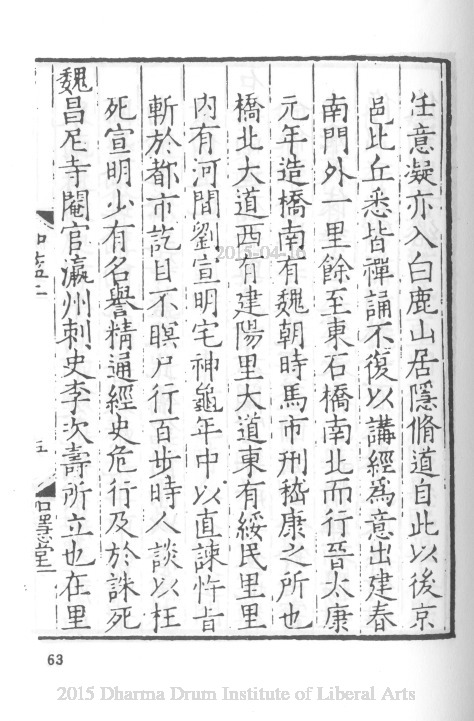 任意凝亦入白鹿山居隱脩道自此以後京
邑比丘悉皆禪誦不復以講經爲意出建春
南門外一里餘至東石橋南北而行晉太康
元年造橋南有魏朝時馬市刑嵇康之所也
橋北大道西有建陽里大道東有綏民里里
內有河間劉宣明宅神龜年中以直諫忤旨
斬於都市訖目不瞑尸行百步時人談以枉
死宣明少有名譽精通經史危行及於誅死
魏昌尼寺閹官瀛州刺史李次壽所立也在里
2015-04-16
63
2015 Dharma Drum Institute of Liberal Arts